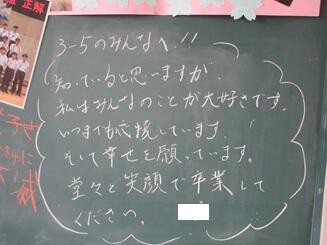 正解
3-5のみんなへ!!
知っていると思いますが、
私はみんなのことが大好きです。
いつまでも応援しています。
そして幸せを願っています。
堂々と笑顔で卒業して
ください。